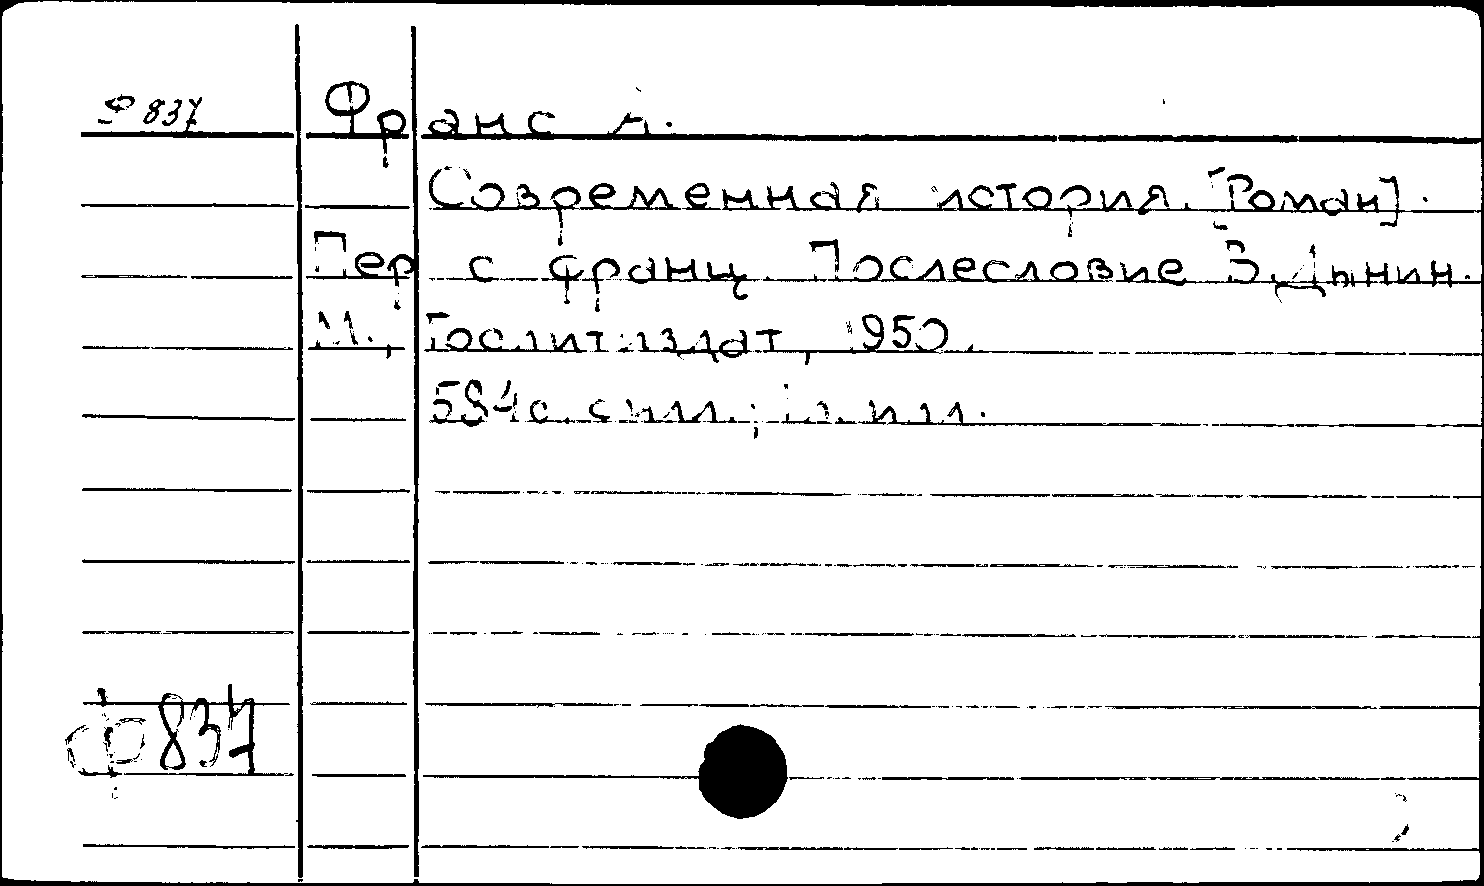 Ф 837
Франс А.
Современная история. [Роман].
Пер с франц. Послесловие В. Дынин.
М., Гослитиздат, 1950.
594 с. с илл.; илл.
ф 837